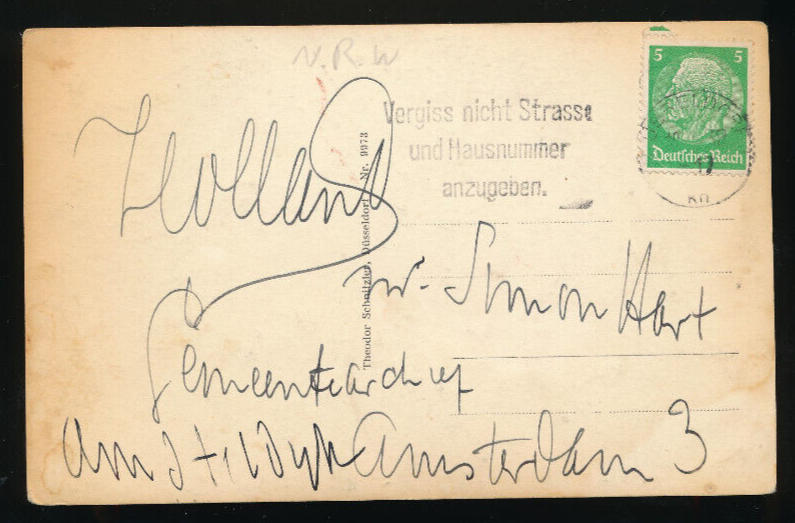 N.R.W
Vergiss nicht Strasse
und Hausnummer
anzugeben.
5 5
Deutsches Reich
Holland
Theodor Schnitzler, Düsseldorf Nr. 9973
Mr. Simon Hart
Gemeentearchief
Amsteldijk Amsterdam 3